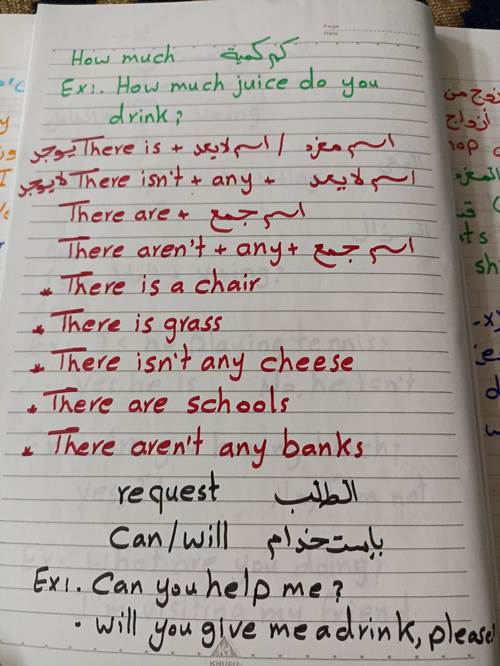 How much كم كمية
Ex1. How much juice do you
drink?
يوجد There is + اسم لا يعد / اسم مفرد
لا يوجد There isn't + any + اسم لا يعد
There are + اسم جمع
There aren't + any + اسم جمع
* There is a chair
* There is grass
* There isn't any cheese
* There are schools
* There aren't any banks
request الطلب
Can/will بإستخدام
Ex1. Can you help me?
. Will you give me a drink, please?